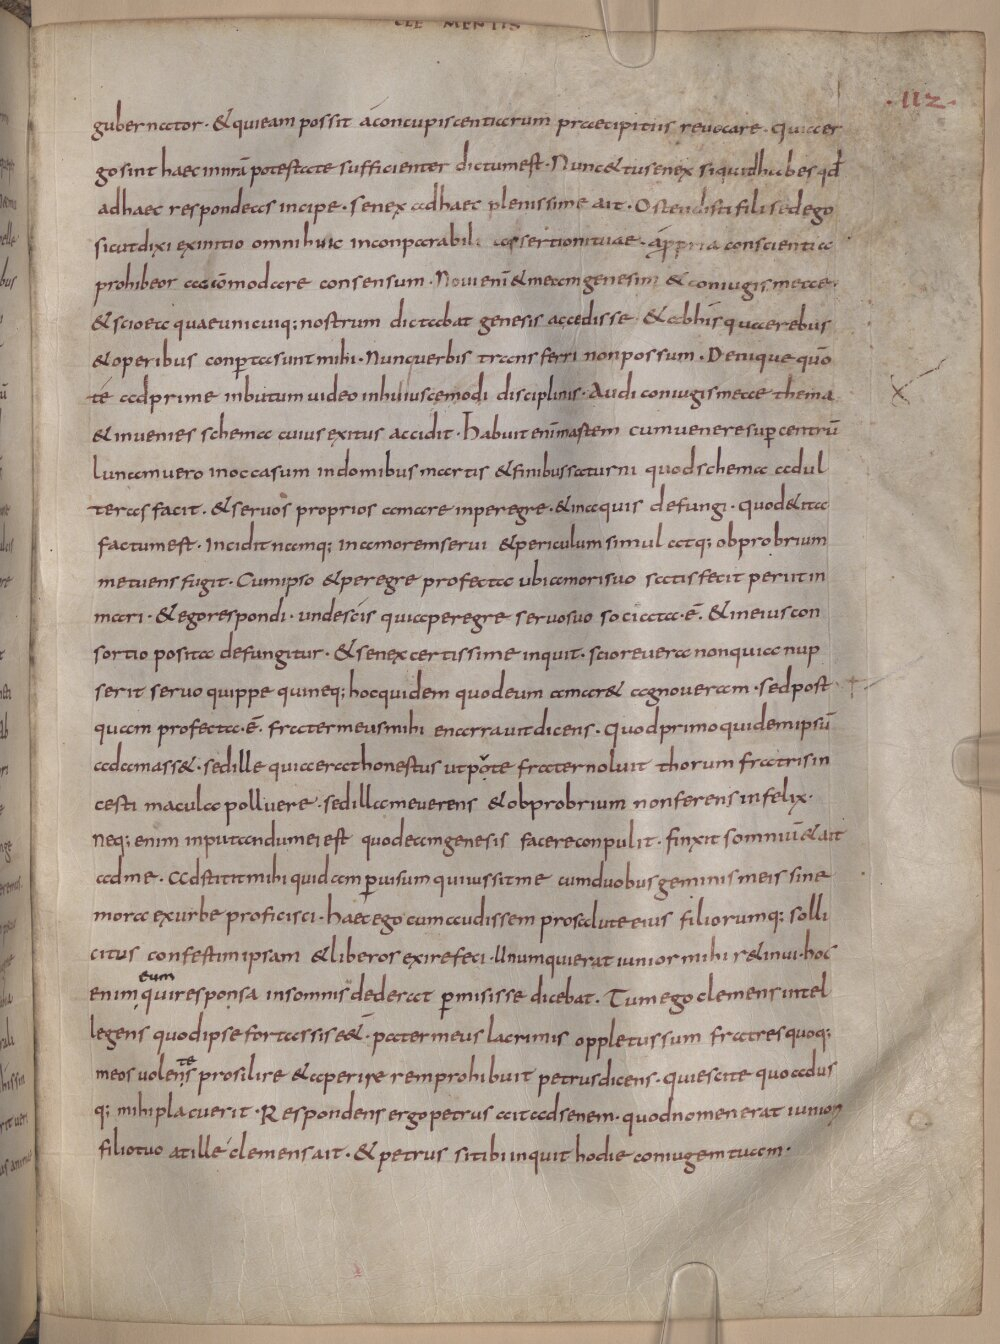 CLEMENTIS
·112·
gubernator · & quieam possit áconcupiscentiarum praecipitiis revocare · quiaer
go sint haec innrā potestate sufficienter dictumest · Nunc & tu senex siquid habes qđ
adhaec respondeas incipe · senex adhaec plenissime ait · Ostendisti fili sed ego
sicut dixi exinitio omni huic inconparabili assertioni tuae · aṕpria conscientia
prohibeor accōmodare consensum · Noui enī & meam genesim & coniugis meae ·
& scio ea quae unicuiq; nostrum dictabat genesis accedisse & abhis quae rebus
& operibus conptasunt mihi · Nunc uerbis transferri non possum · Denique quō
té adprime inbutum uideo inhuiuscemodi disciplinis · Audi coniugis meae thema
& inuenies schema cuius exitus accidit · Habuit enī mastem cum uenere sup centrū
lunam uero in occasum in domibus martis & finibus saturni quod schema adul
teras facit · & seruos proprios amare inperegre · & in aquis defungi · quod & ita
factumest · incidit namq; in amorem serui & periculum simul atq; obprobrium
metuens fugit · Cum ipso & peregre profecta ubi amori suo satis fecit periit in
mari · & ego respondi · unde scis quia peregre seruo suo sociata · ē · & in eius con
sortio posita defungitur · & senex certissime inquit · scio reuera non quia nup
serit seruo quippe quineq; hoc quidem quod eum amar& agnoueram · sed post
quam profecta · ē · frater meus mihi enarrauit dicens · Quod primo quidem ipsū
adamass& · sed ille quia erat honestus utpote frater noluit thorum fratris in
cesti macula polluere · sed illa me uerens & obprobrium non ferens infelix ·
neq; enim inputandum ei est quod eam genesis facere conpulit · finxit somniū & ait
ad me · Adstitit mihi quidam p uisum qui iussit me cum duobus geminis meis sine
mora exurbe proficisci · haec ego cum audissem pro salute eius filiorumq; solli
citus confestim ipsam & liberos exire feci · Unum qui erat iunior mihi r&inui · hoc
eum
enim qui responsa in somnis dederat pmisisse dicebat · Tum ego clemens intel
legens quod ipse fortassis e&̄ · pater meus lacrimis oppletus sum fratres quoq;
te
meos uolens prosilire & aperire rem prohibuit petrus dicens · quiescite quo adus
q; mihi placuerit · Respondens ergo petrus ait ad senem · quod nomen erat iunion
filio tuo at ille clemens ait · & petrus si tibi inquit hodie coniugem tuam ·